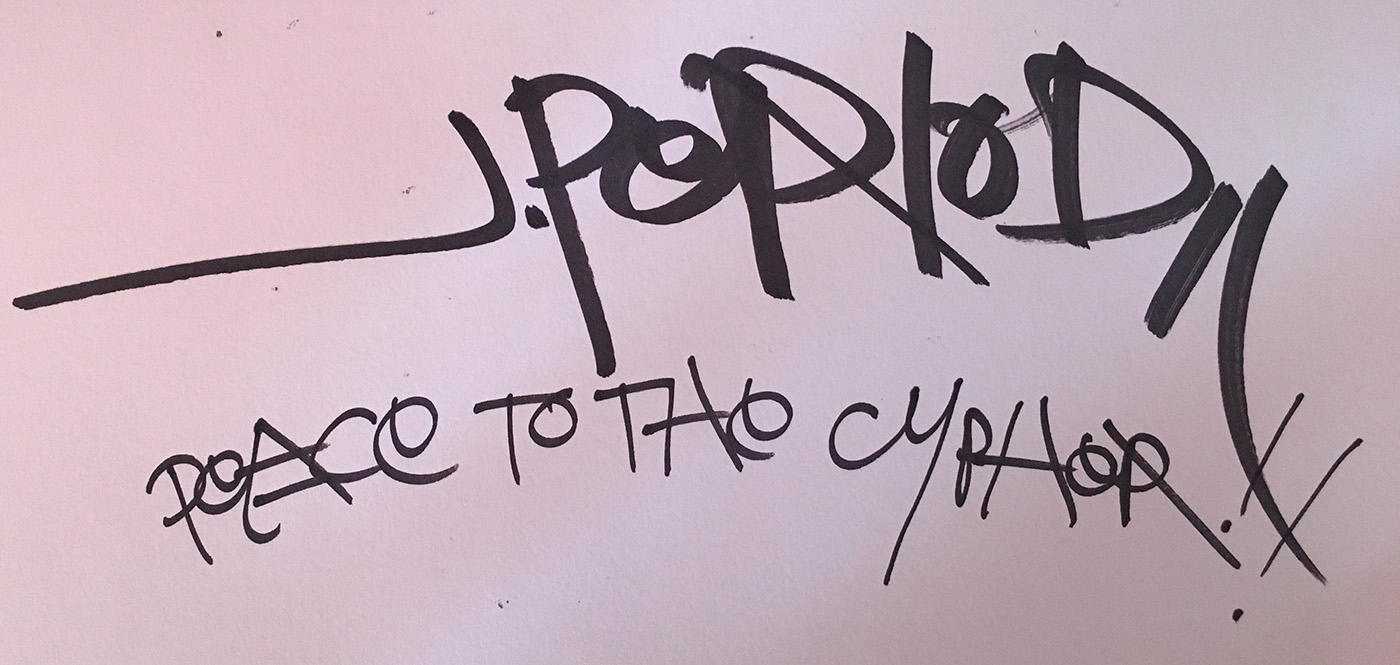 J.PERIOD
PEACE TO THE CYPHER.